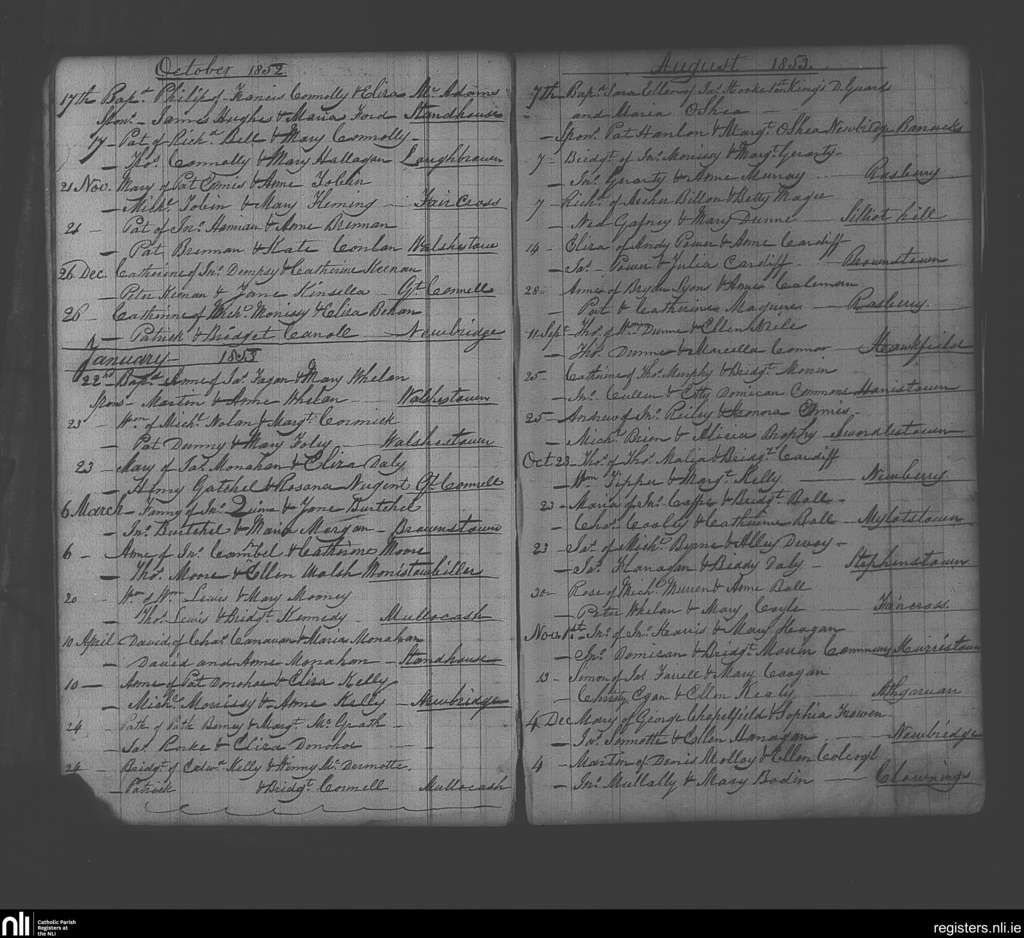 October 1852
17th Bapt. Philip of Francis Connolly & Eliza McAdams
Spon. James Hughes & Maria Ford Standhouse
17 Pat of Richd Bell & Mary Connolly
Thos. Connolly & Mary Hallagan Loughbrown
21 Nov. Mary of Pat Ennis & Anne Tobin
Michl. Tobin & Mary Fleming Fair Cross
21 Pat of Jno. & Anne Brennan
Pat Brennan & Kate Conlan Walshestown
26 Dec. Catherine of Jno. Dempsy & Catherine Keenan
Peter Keenan & Jane Kinsella Gt. Connell
26 Catherine of Michl. Morissy & Eliza Behan
Patrick & Bridget Newbridge
January 1853
22nd Bapt. Anne of Jas. Fagan & Mary Whelan
Spons Martin & Anne Whelan Walshestown
23 Wm of Michl. Nolan & Margt. Cormick
Pat Dunny & Mary Foley Walshestown
23 Mary of Jas. Monahan & Eliza Daly
Henry Gatchel & Rosana Nugent Gt Connell
6 March Fanny of Jno. Quinn & Jane Burtchel
Jno. Burtchel & Maria Morgan Brownstown
6 Anne of Jno. Cambel & Catherine Moore
Thos. Moore & Ellen Walsh
20 Wm of Wm Lewis & Mary Mooney
Thos. Lewis & Bridgt. Kennedy Mullocash
10 April David of Chas. Canavan & Maria Monahan
David and Anne Monahan Standhouse
10 Anne of Pat Donohoe & Eliza Kelly
Michl. Morrissy & Anne Kelly Newbridge
24 Patk of Patk & Margt. McGrath
Jas. Rorke & Eliza Donohoe
24 Bridgt. of Edwd. Kelly & McDermotte
Patrick & Bridgt. Connell Mullocash
August 1853
7th Bapt. Sara Ellen of Jas. Kings D. Guards
and Maria OShea
Spon. Pat Hanlon & Margt. OShea Newbridge Barracks
7 Bridgt. of Jno. Morissy & Margt. Gerarty
Jno. Gerarty & Anne Murray Rasberry
7 Richd. of Archer Bilton & Betty Magee
Ned Gafney & Mary Dunne Silliot hill
14 Eliza of Andy Power & Anne Cardiff
Jas. Power & Julia Cardiff Brownstown
28 Anne of Bryan Lyons & Anne Coleman
Pat & Catherine Maguire Rasberry
11 Sept. Thos. of Wm Dunne & Ellen Steele
Thos. Dunne & Marcella Connor Hawkfield
25 Catherine of Thos. Murphy & Bridgt.
Jno. Cullen & Domican Commons
25 Andrew of Jno. Reiley & Honora Ennis
Michl. Brien & Alicia Brophy Swordlestown
Oct 23 Thos. of Thos. & Bridgt. Cardiff
Wm Tipper & Margt. Kelly Newberry
23 Maria of Jno. & Bridgt. Ball
Chas. Cooley & Catherine Ball
23 Jas. of Michl. Byrne & Alley Devoy
Jas. Flanagan & Biddy Daly Stephenstown
30 Rose of Michl. & Anne Ball
Peter Whelan & Mary Coyle Faircross
Nov. 1st. Jno. of Jno. Harris & Mary Heagan
Jno. Domican & Bridgt.
13 Simon of Jas. Farrell & Mary Coogan
Christy Egan & Ellen Kealy Athgarvan
4 Dec Mary of George Chapelfield & Sophia
Jas. & Ellen Hanagan Newbridge
4 Martin of Denis Molloy & Ellen
Jno. Mullally & Mary Bodin Clownings
nli Catholic Parish
Registers at
the NLI
registers.nli.ie